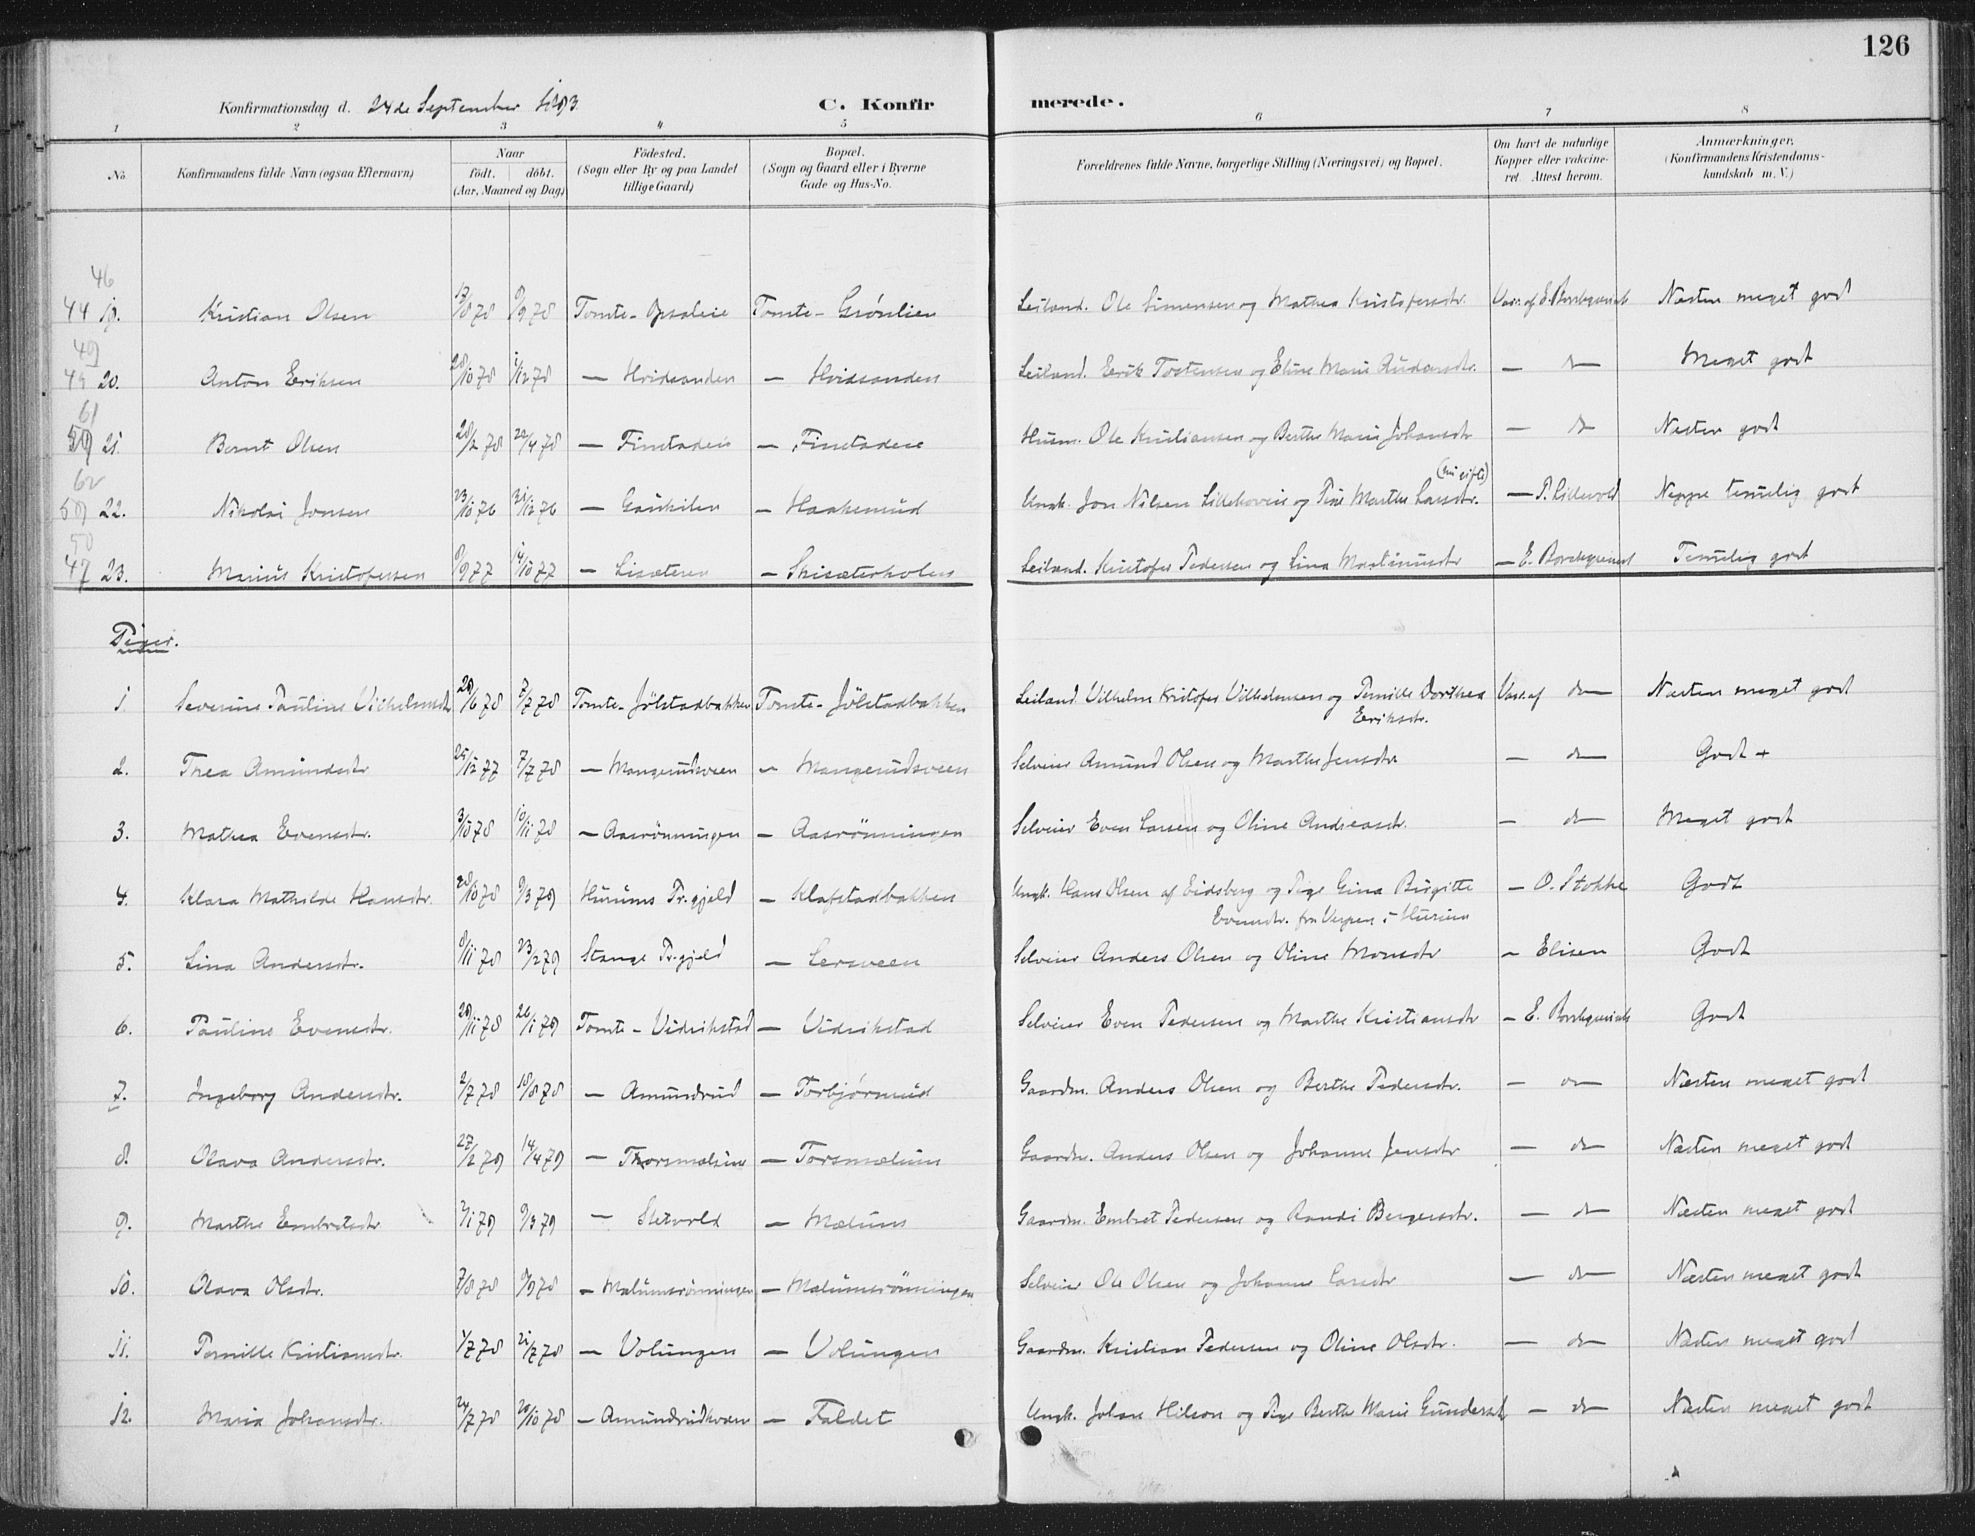 126
Konfirmationsdag d. 24de September 1893.
C. Konfirmerede.
1 2 3 4 5 6 7 8
No. Konfirmandens fulde Navn (ogsaa Efternavn) Naar födt. döbt. (Aar, Maaned og Dag) Födested. (Sogn eller By og paa Landet tillige Gaard) Bopæl. (Sogn og Gaard eller i Byerne Gade og Hus-No. Forældrenes fulde Navne, borgerlige Stilling (Næringsvei) og Bopæl. Om havt de naturlige Kopper eller vakcineret. Attest herom. Anmærkninger. (Konfirmandens Kristendomskundskab m. V.)
46
44 19. Kristian Olsen Tomte - Opsaleie Tomte - Grønlien Leiland. Ole Simensen og Mathea Kristofersdtr. Vacc. af E. Borchgrevink Næsten meget godt
49
20. Anton Eriksen 28/10 78 1/12 78 — Hvidsanden — Hvidsanden Leiland. Erik Tostensen og Eline Marie Audensdtr. — do — Meget godt
61
21. Bernt Olsen 28/2 78 22/4 78 — Finstadeie — Finstadeie Husm. Ole Kristiansen og Berthe Marie Johansdtr — do Næsten godt
62
59 22. Nikolai Jonsen 23/10 76 31/12 76 — Gaukilen — Haakenrud Ungk. Jon Nilsen Lillehoveie og Pige Marthe Larsdtr. (nu gift) — P. Lillevold Neppe temelig godt
50
47 23. Marius Kristofersen 9/9 77 14/10 77 — Lisæteren — Skisæterholen Leiland. Kristofer Pedersen og Lina Martinusdtr — E. Borchgrevink Temelig godt
Piger.
1 Severine Pauline Vilhelmsdtr 20/6 78 Tomte - Jölstadbakken Tomte - Jölstadbakken Leiland Vilhelm Kristofer Vilhelmsen og Pernille Dorthea Eriksdtr. Vacc. af do — Næsten meget godt
2. Thea Amundsdtr 25/12 77 7/7 78 — Mangerudsveen — Mangerudsveen Selveier Amund Olsen og Marthe Jensdtr — do — Godt +
3. Mathea Evensdtr. 3/10 78 10/11 78 — Aasrönningen — Aasrönningen Selveier Even Larsen og Oline Andreasdtr. — do — Meget godt
4. Klara Mathilde Hansdtr. 28/10 78 9/3 79 Hurums Pr.gjeld — Klafstadbakken Ungk. Hans Olsen af Eidsberg og Pige Gina Birgitte Evensdtr. fra Verpen i Hurum — O. Stokke Godt
5. Lina Andersdtr. 8/11 78 23/2 79 Stange Pr.gjeld — Lersveen Selveier Anders Olsen og Oline Monsdtr — Elisen Godt
6. Pauline Evensdtr. 29/11 78 26/1 79 Tomte - Vidrikstad — Vidrikstad Selveier Even Pedersen og Marthe Kristiansdtr — E. Borchgrevink Godt
7. Ingeborg Andersdtr. 2/7 78 18/8 78 — Amundrud — Torbjørnrud Gaardm. Anders Olsen og Berthe Pedersdtr. — do — Næsten meget godt
8. Olava Andersdtr. 27/2 79 14/4 79 — Thorsmælum — Torsmælum Gaardm. Anders Olsen og Johanne Jensdtr — do — Næsten meget godt
9. Marthe Embretsdtr 2/1 79 9/3 79 — Sletvold — Mælum Gaardm. Embret Pedersen og Randi Bergersdtr. — do — Næsten meget godt
10. Olava Olsdtr. 7/8 78 9/9 78 — Mælumsrönningen — Mælumsrönningen Selveier Ole Olsen og Johanne Larsdtr — do — Næsten meget godt
11. Pernille Kristiansdtr. 1/7 78 21/7 78 — Volungen — Volungen Gaardm. Kristian Pedersen og Oline Olsdtr. — do — Næsten meget godt
12. Maria Johansdtr. 24/7 78 20/10 78 — Amundrudsveen — Faldet Ungk. Johan Hilson og Pige Berthe Marie Gundersdtr — do — Næsten meget godt